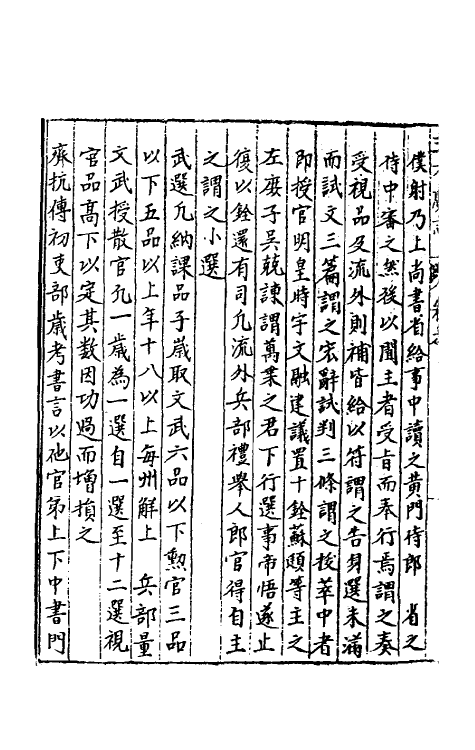 僕射乃上尚書省給事中讀之黄門侍郎　省之
侍中審之然後以聞主者受旨而奉行焉謂之奏
受視品及流外則補皆給以符謂之告身選未滿
而試文三篇謂之宏辭試判三條謂之拔萃中者
即授官明皇時宇文融建議置十銓蘇頲等主之
左庶子吳兢諫謂萬乗之君下行選事帝悟遂止
復以銓還有司凡流外兵部禮舉人郎官得自主
之謂之小選
武選凡納課品子嵗取文武六品以下勲官三品
以下五品以上年十八以上每州解上　兵部量
文武授散官凡一嵗為一選自一選至十二選視
官品高下以定其数因功過而增損之
齊抗傳初吏部嵗考書言以他官第上下中書門